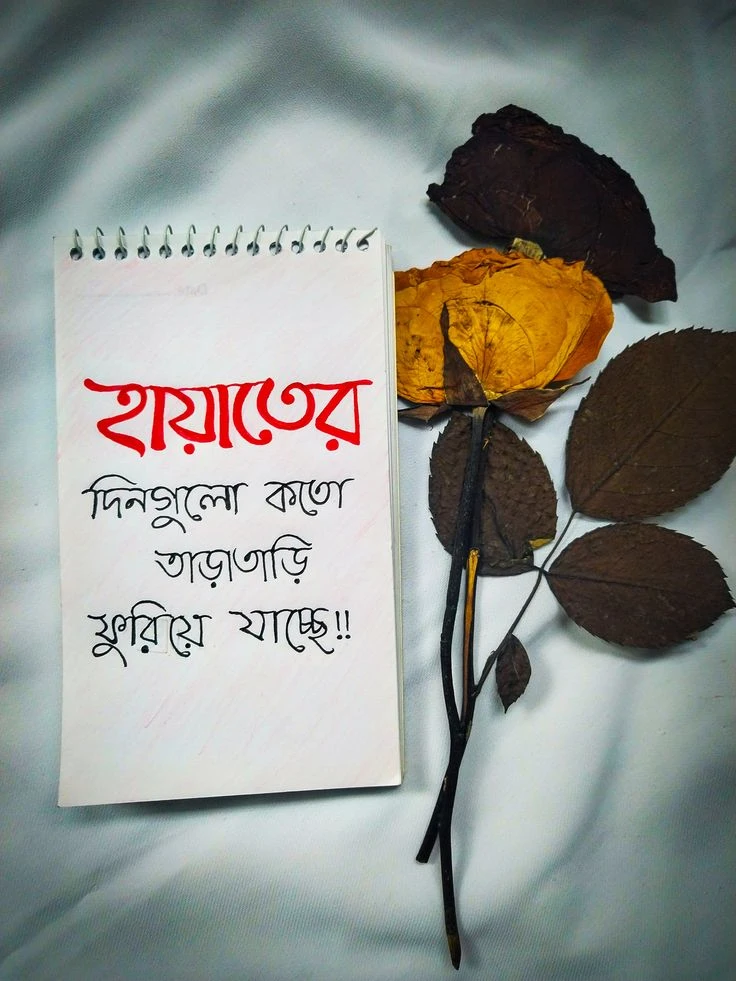 হায়াতের
দিনগুলো কতো
তাড়াতাড়ি
ফুরিয়ে যাচ্ছে!!